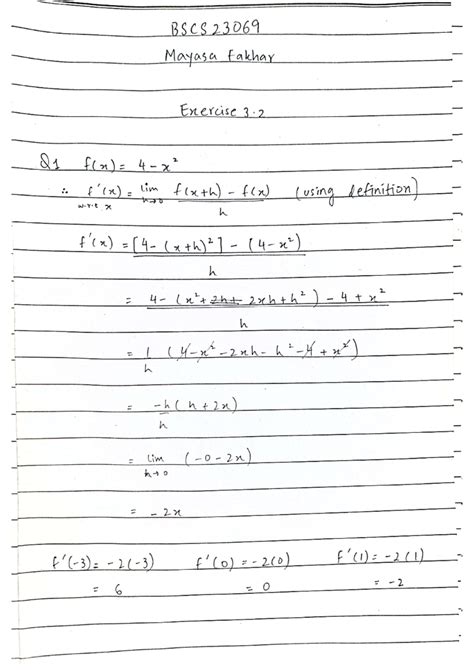 BSCS23069
Mayasa Fakhar
Exercise 3.2
Q1 f(x) = 4 - x²
∴ f'(x) = lim h→0 f(x+h) - f(x) / h (using definition)
w.r.t x
f'(x) = [4 - (x+h)²] - (4 - x²) / h
= 4 - (x² + 2h + 2xh + h²) - 4 + x² / h
= 1/h (4 - x² - 2xh - h² - 4 + x²)
= -h (h + 2x) / h
= lim h→0 (-0 - 2x)
= -2x
f'(-3) = -2(-3) f'(0) = -2(0) f'(1) = -2(1)
= 6 = 0 = -2